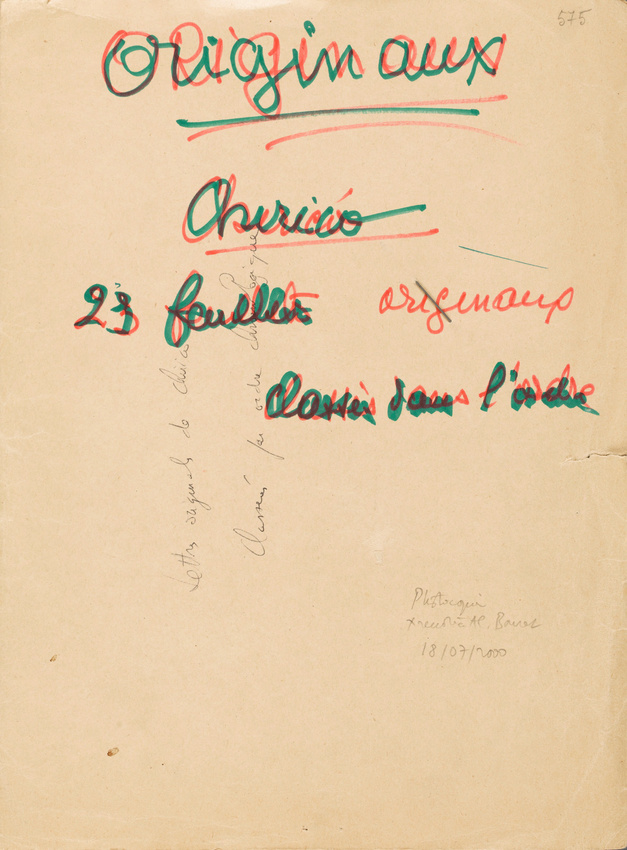 575
Originaux
Chirico
23 feuillets originaux
classés dans l'ordre
Lettres originales de Chirico
classées par ordre chronologique
18/07/2000